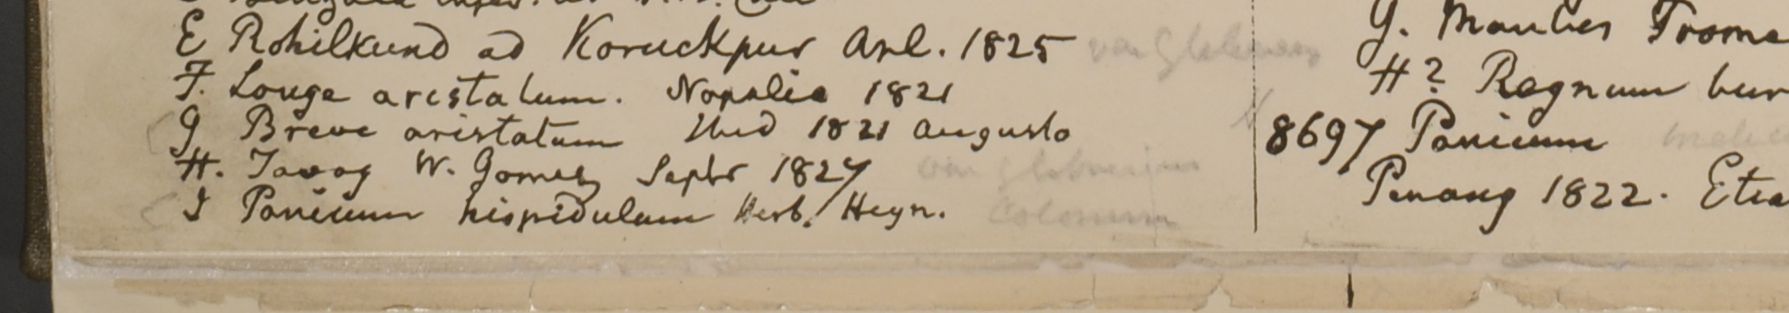 E Rohilkund ad Koruckpur Apl. 1825
F. Longe aristatum. Napalia 1821
G Breve aristatum Ibid 1821 Augusto
H. Tavoy W. Gomez Septr 1827
I Panicum hispidulum Herb. Heyn.
colonum
G. Manlies Trome
H? Regnum bur
8697 Panicum
Penang 1822. Etia